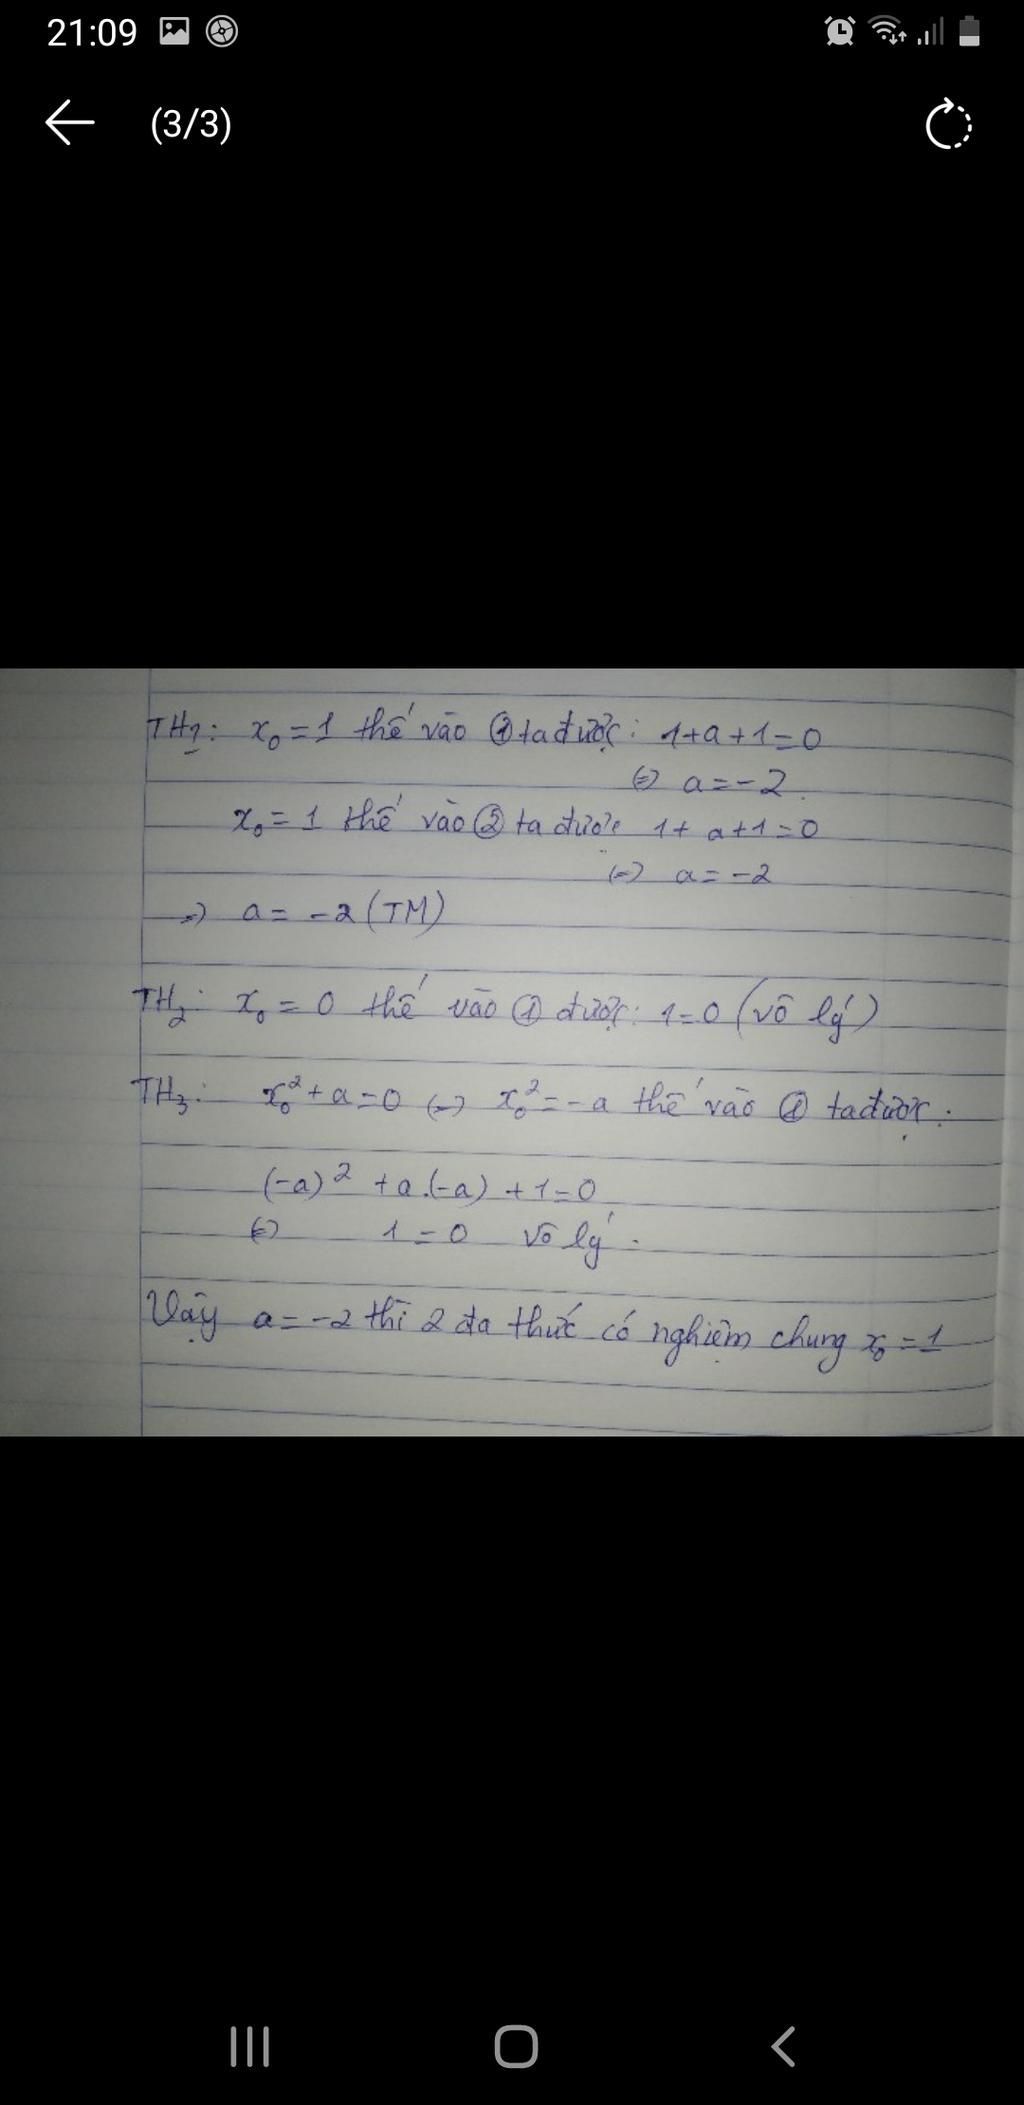 21:09
(3/3)
TH1: x₀ = 1 thế vào ① ta được: 1+a+1=0
(=) a=-2
x₀ = 1 thế vào ② ta được 1+ a+1=0
(=) a= -2
=) a= -2 (TM)
TH2: x₀ = 0 thế vào ① được: 1=0 (vô lý)
TH3: x₀²+a=0 (=) x₀²=-a thế vào ① ta được:
(-a)² +a.(-a) +1=0
(=) 1=0 vô lý.
Vậy a=-2 thì 2 đa thức có nghiệm chung x₀=1